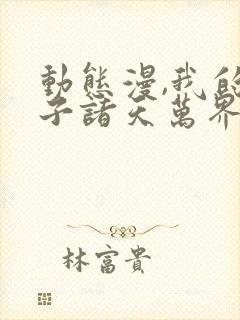 動態漫,我的
子諸天萬界
林富貴